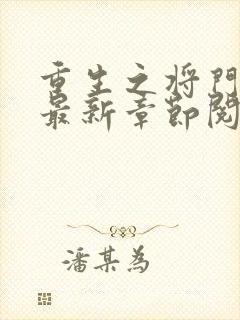 重生之将門
最新章節閱
潘某為